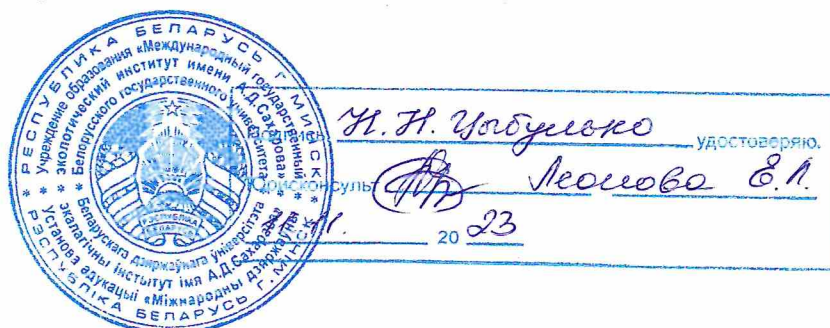 РЕСПУБЛИКА БЕЛАРУСЬ Г. МИНСК
Учреждение образования «Международный государственный
экологический институт имени А.Д.Сахарова»
Белорусского государственного университета
Беларускага дзяржаўнага ўніверсітэта
экалагічны інстытут імя А.Д.Сахарава»
Установа адукацыі «Міжнародны дзяржаўны
РЭСПУБЛІКА БЕЛАРУСЬ Г. МІНСК
РЭСПУБЛІКА
БЕЛАРУСЬ
Подпись Н.Н. Цыбулько удостоверяю.
Юрисконсульт Леонова Е.Л.
11. 20 23